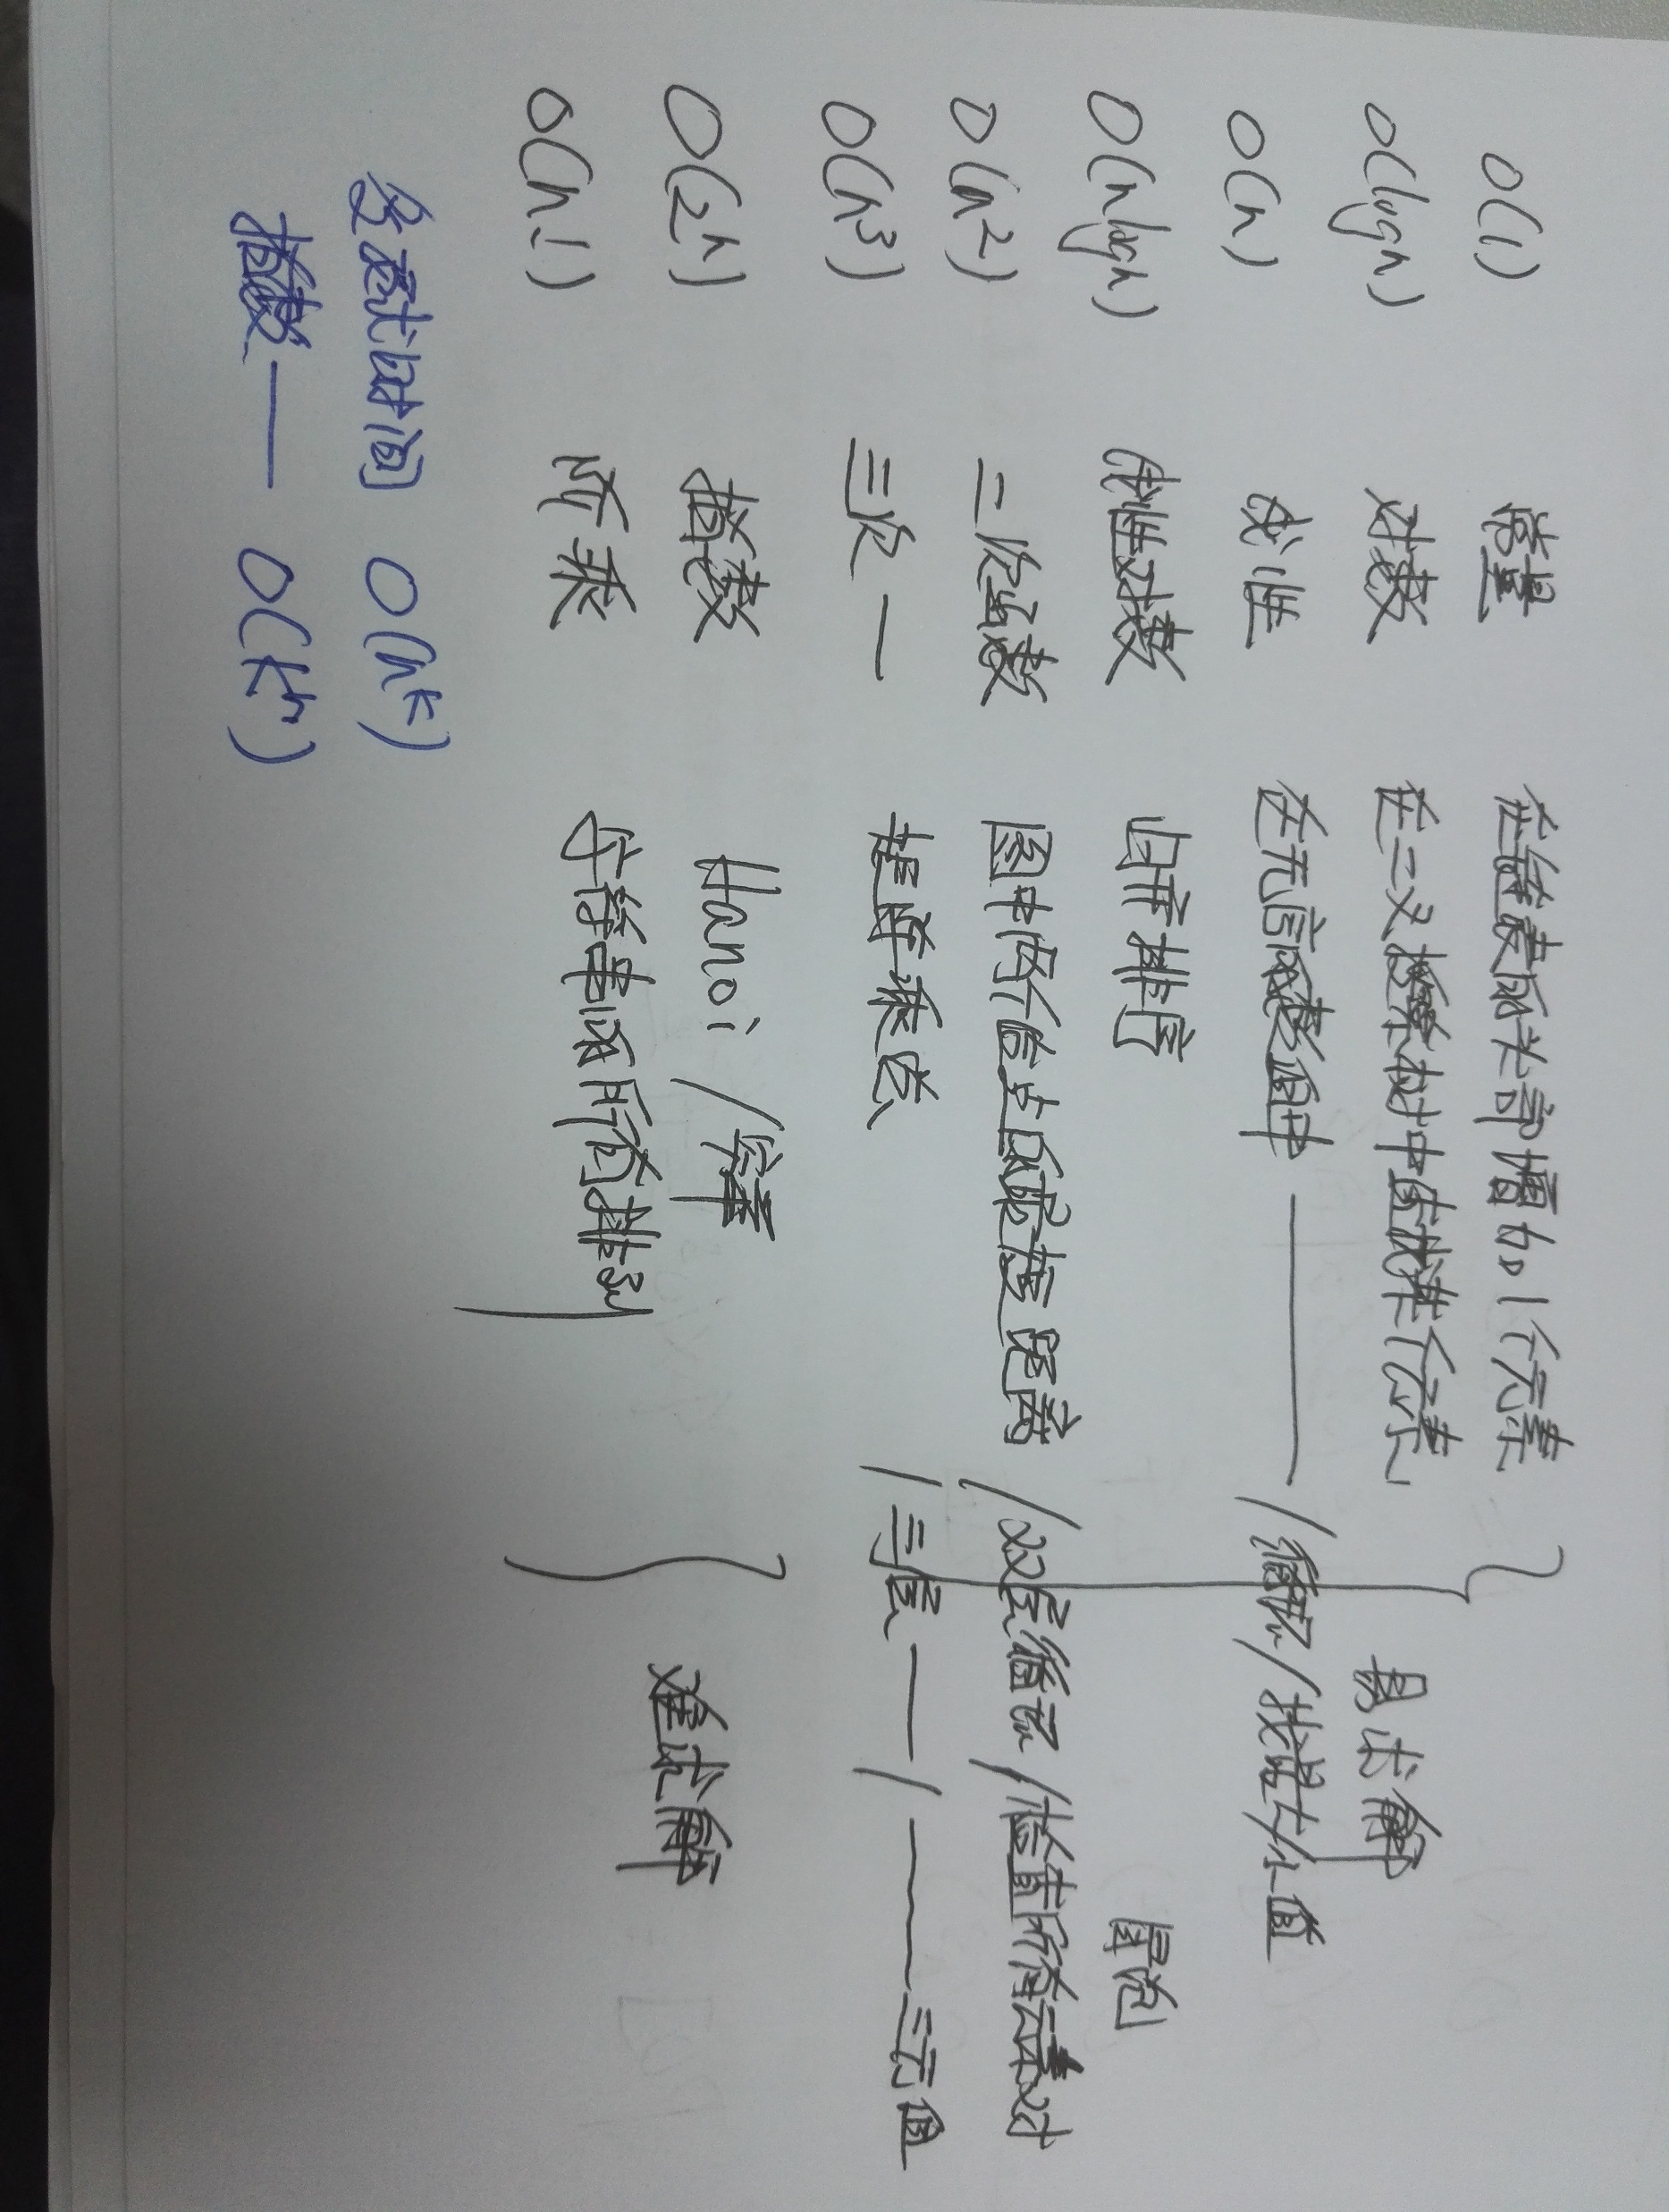 O(1) 常量 在链表的头部增加1个元素
O(lgn) 对数 在二叉搜索树中查找某个元素 易求解
O(n) 线性 在无序数组中—— /循环/找最大/小值
O(nlogn) 线性对数 归并排序 冒泡
O(n²) 二次函数 图中两个结点的最短距离 /双层循环/检查所有元素对
O(n³) 三次— 矩阵乘法 /三层——/——三元值
O(2ⁿ) 指数 Hanoi / 难求解
O(n!) 阶乘 字符串的所有排列
多项式时间 O(nᵏ)
指数—— O(kⁿ)